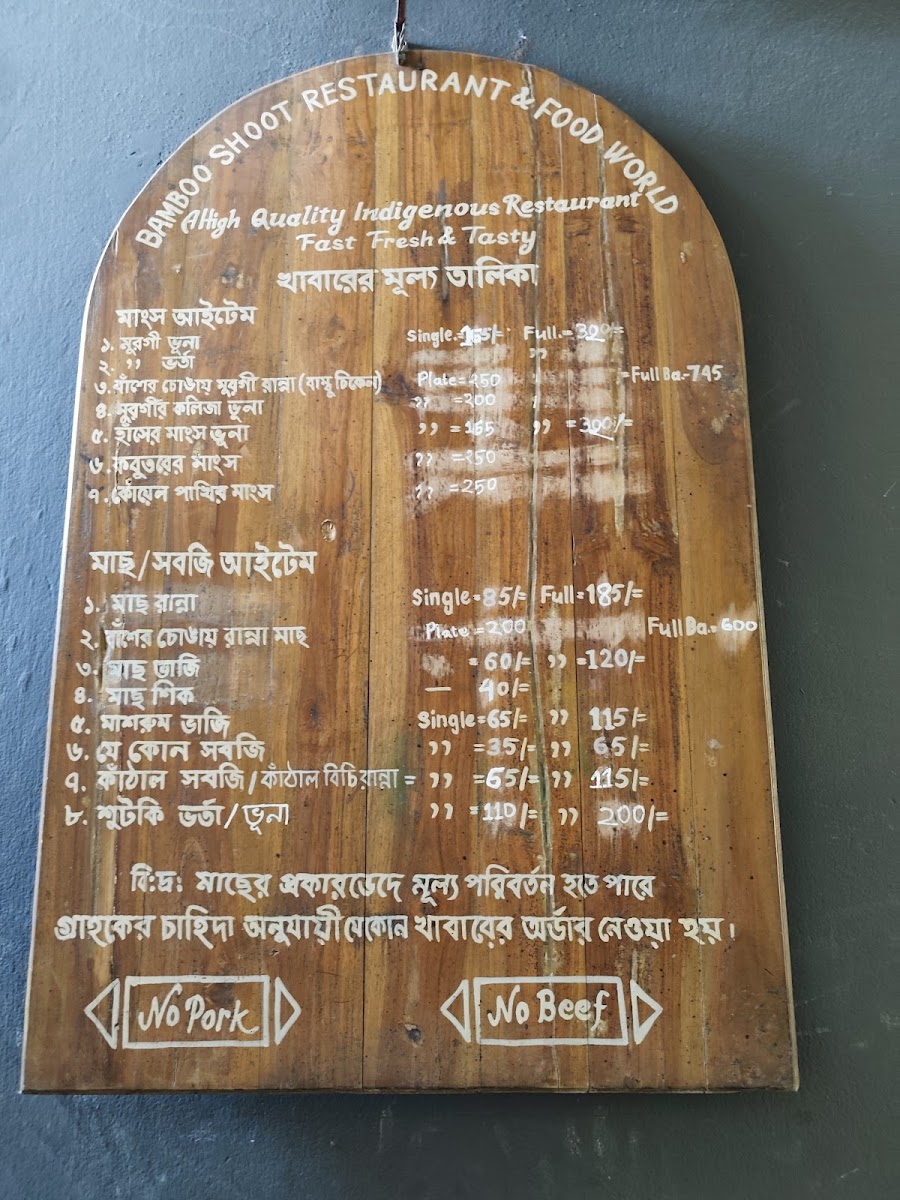 BAMBOO SHOOT RESTAURANT & FOOD WORLD
A High Quality Indigenous Restaurant
Fast Fresh & Tasty
খাবারের মূল্য তালিকা
মাংস আইটেম
১. মুরগী ভূনা Single.=165/= Full.=300/=
২. ,, ভর্তা ,,
৩. বাঁশের চোঙায় মুরগী রান্না (বাম্বু চিকেন) Plate=250 =Full Ba.-745
৪. মুরগীর কলিজা ভূনা ,, =200
৫. হাঁসের মাংস ভূনা ,, =165 ,, =300/=
৬. কবুতরের মাংস ,, =250
৭. কোয়েল পাখির মাংস ,, =250
মাছ/সবজি আইটেম
১. মাছ রান্না Single=85/= Full=185/=
২. বাঁশের চোঙায় রান্না মাছ Plate=200 Full Ba.=600
৩. মাছ ভাজি =60/= ,, =120/=
৪. মাছ শিক — 40/=
৫. মাশরুম ভাজি Single=65/= ,, 115/=
৬. যে কোন সবজি ,, =35/= ,, 65/=
৭. কাঁঠাল সবজি/কাঁঠাল বিচি রান্না = ,, =65/= ,, 115/=
৮. শুটকি ভর্তা/ভূনা ,, =110/= ,, 200/=
বি:দ্র: মাছের প্রকারভেদে মূল্য পরিবর্তন হতে পারে
গ্রাহকের চাহিদা অনুযায়ী যেকোন খাবারের অর্ডার নেওয়া হয়।
No Pork No Beef